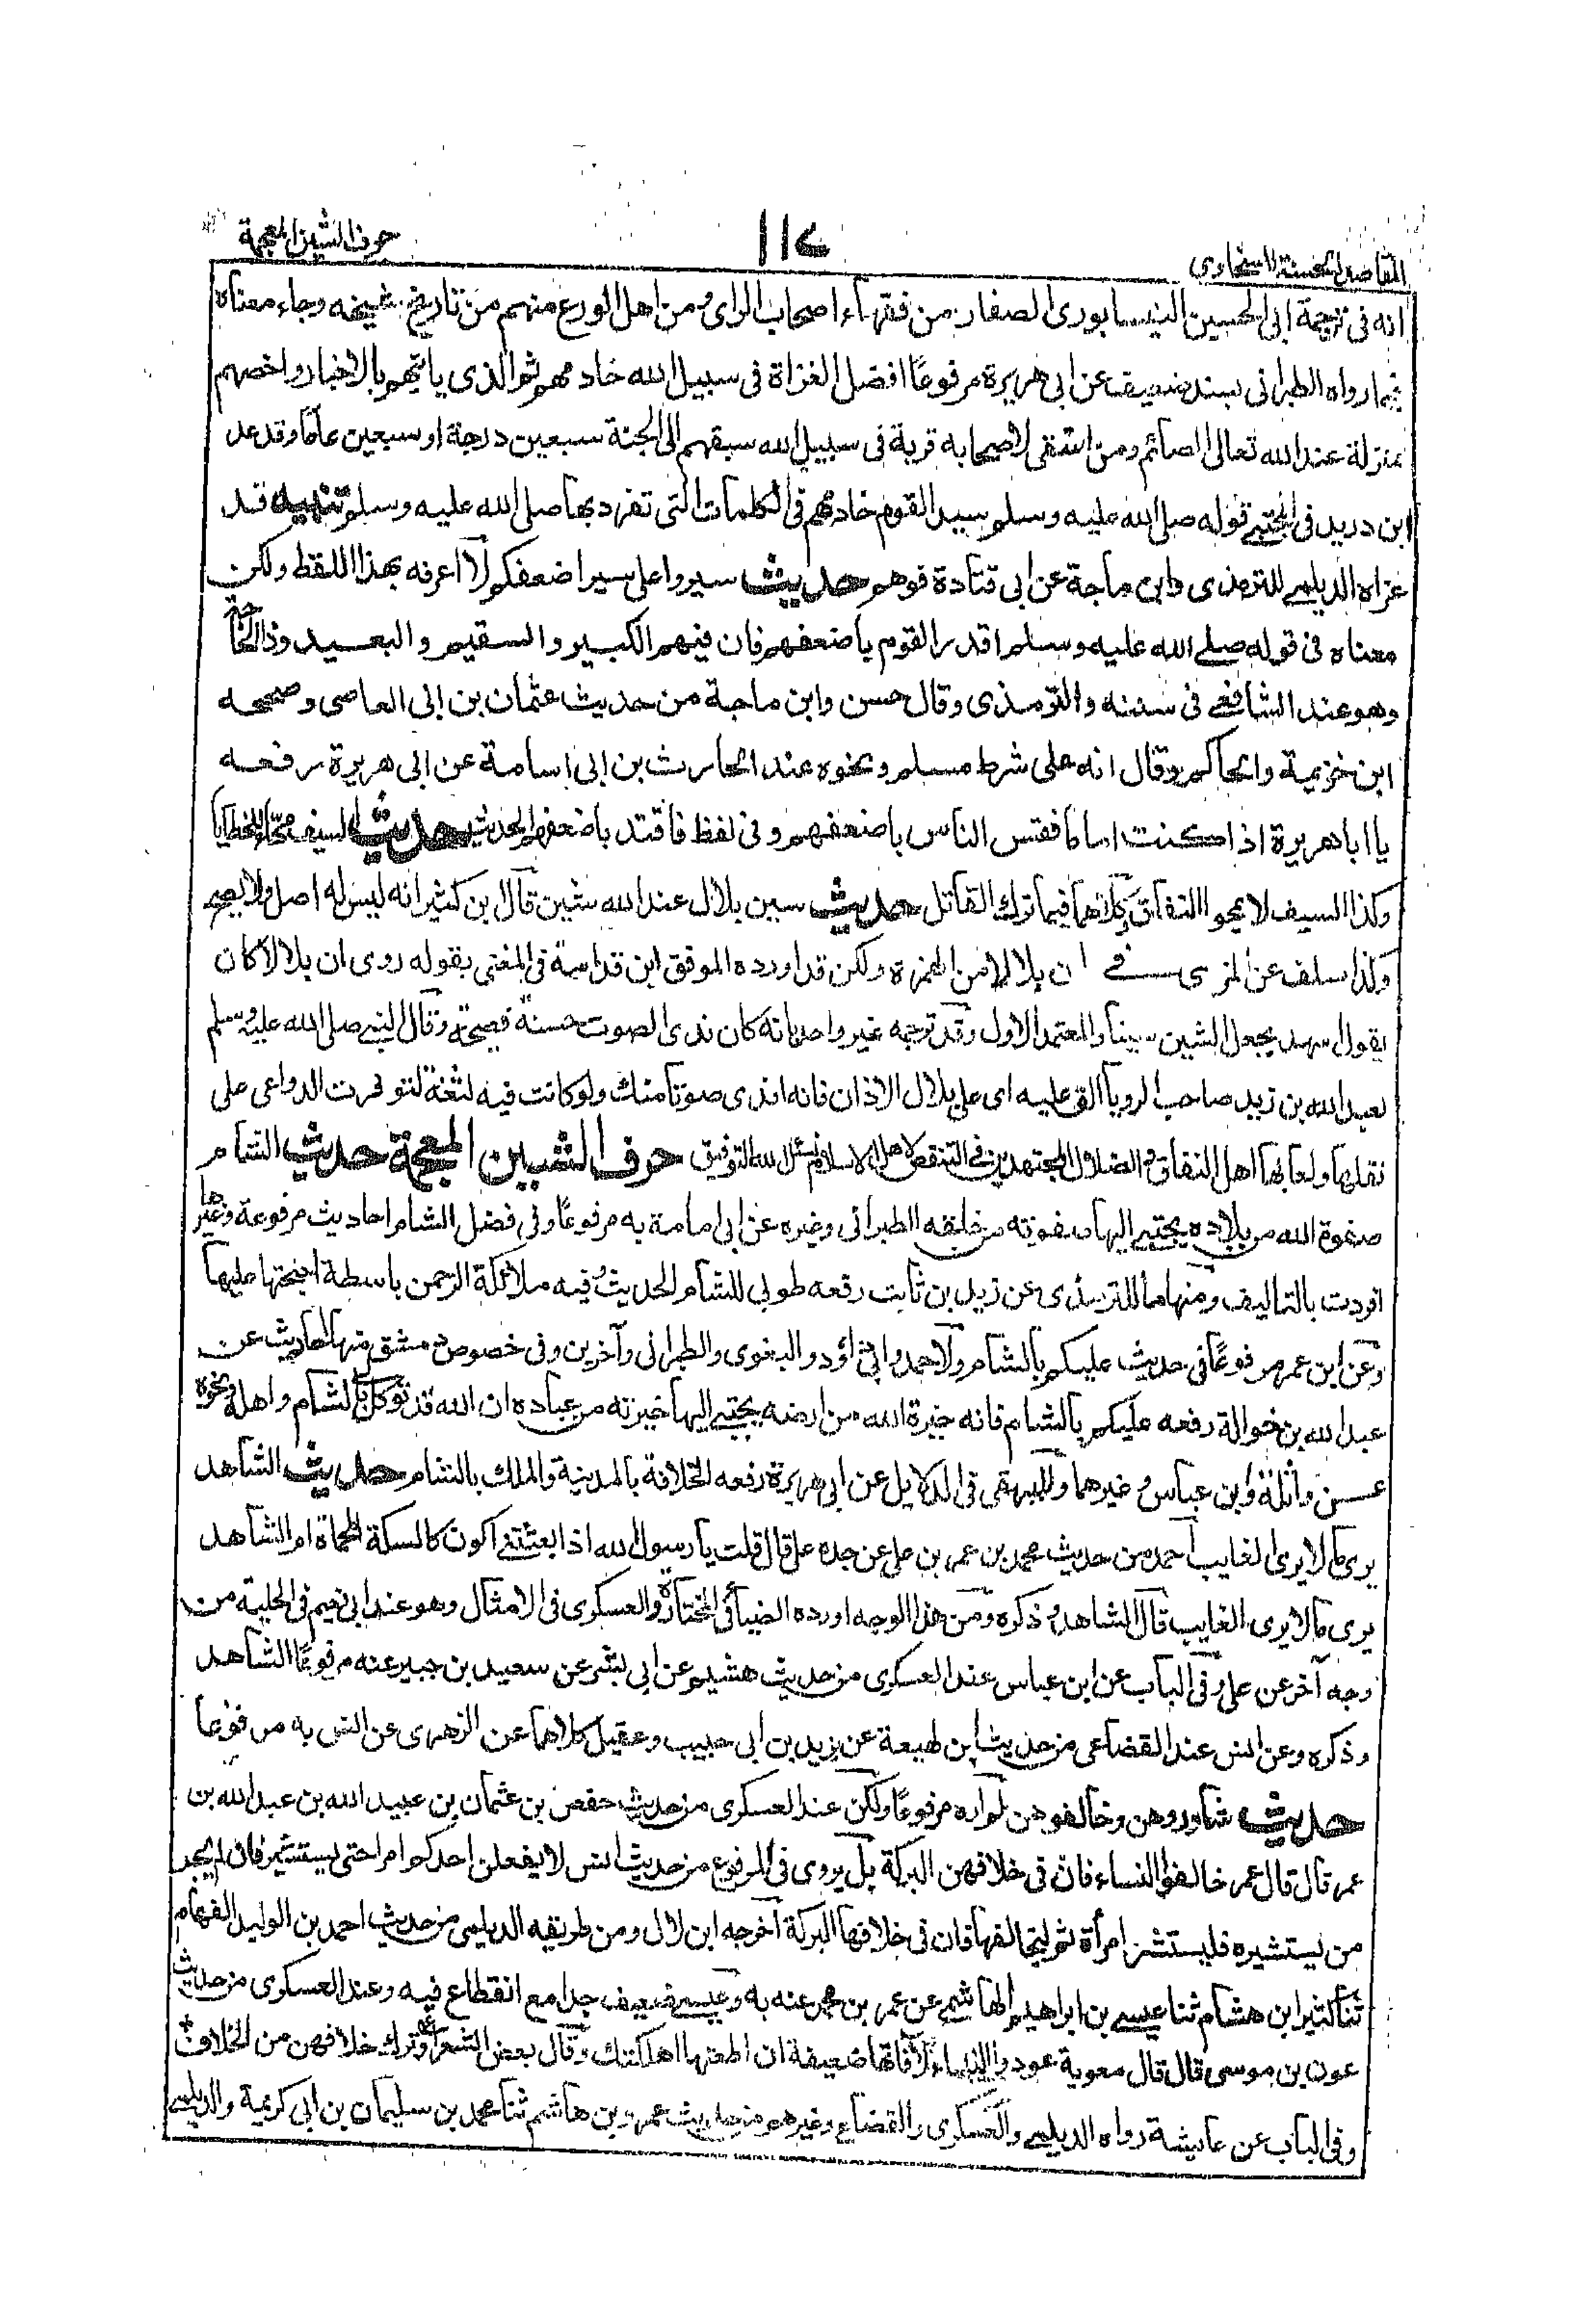 المقاصد الحسنة للسخاوي
١١٧
حرف الشين المعجمة
انه فى ترجمة ابى الحسين النيسابورى الصفار من فقهاء اصحاب الراى ومن اهل الورع منهم من تاريخ شيخه وجاء معناه
فيما رواه الطبرانى بسند ضعيف عن ابى هريرة مرفوعًا افضل الغزاة فى سبيل الله خادمهم ثم الذى ياتيهم بالاخبار واخصهم
منزلة عند الله تعالى الصائم ومن استقى لاصحابه قربة فى سبيل الله سبقهم الى الجنة سبعين درجة او سبعين عامًا وقد عد
ابن دريد فى المجتبے قوله صلى الله عليه وسلم سيد القوم خادمهم فى الكلمات التى تفرد بها صلى الله عليه وسلم تنبيه قد
عزاه الديلمے للترمذى وابن ماجة عن ابى قتادة فوهم حديث سيروا على سير اضعفكم لا اعرفه بهذا اللفظ ولكن
معناه فى قوله صلے الله عليه وسلم اقدر القوم باضعفهم فان فيهم الكبير والسقيم والبعيد وذا الحاجة
وهو عند الشافعے فى سننه والترمذى وقال حسن وابن ماجة من حديث عثمان بن ابى العاصى وصححه
ابن خزيمة والحاكم وقال انه على شرط مسلم ونحوه عند الحارث بن ابى اسامة عن ابى هريرة رفعه
يا ابا هريرة اذا كنت اماما فقس الناس باضعفهم وفى لفظ فاقتد باضعفهم الحديث حديث السيف محاء للخطايا
وكذا السيف لا يمحوا النفاق كلاهما فيما ترك القاتل حديث سين بلال عند الله شين قال بن كثير انه ليس له اصل ولا يصح
وكذا سلف عن المزى فے ان بلالا من الهمزة ولكن قد اورده الموفق ابن قدامة فى المغنى بقوله روى ان بلالا كان
يقول اسهد يجعل الشين سينا والمعتمد الاول وقد ترجمه غير واحد بانه كان ندى الصوت حسنه فصيحه وقال النبے صلى الله عليه وسلم
لعبد الله بن زيد صاحب الرويا القى عليه اى على بلال الاذان فانه اندى صوتا منك ولو كانت فيه لثغة لتوفرت الدواعى على
نقلها ولعابها اهل النفاق والضلال المجتهدين فى التنقص لاهل الاسلام نسئل الله التوفيق حرف الشين المعجمة حديث الشام
صفوة الله من بلاده يجتبى اليها صفوته من خلقه الطبرانى وغيره عن ابى امامة به مرفوعًا وفى فضل الشام احاديث مرفوعة وغيرها
افردت بالتاليف ومنها ما للترمذى عن زيد بن ثابت رفعه طوبى للشام الحديث وفيه ملائكة الرحمن باسطة اجنحتها عليها
وعن ابن عمر مرفوعًا فى حديث عليكم بالشام ولاحمد وابى داؤد والبغوى والطبرانى وآخرين وفى خصوص دمشق منها احاديث عن
عبد الله بن حوالة رفعه عليكم بالشام فانه خيرة الله من ارضه يجتبى اليها خيرته من عباده ان الله قد توكل لى بالشام واهله ونحوه
عن واثلة وابن عباس وغيرهما وللبيهقى فى الدلايل عن ابى هريرة رفعه الخلافة بالمدينة والملك بالشام حديث الشاهد
يرى ما لا يرى الغايب احمد من حديث محمد بن عمر بن على عن جده على قال قلت يا رسول الله اذا بعثتنے اكون كالسكة المحماة ام الشاهد
يرى ما لا يرى الغايب قال الشاهد وذكره ومن هذا الوجه اورده الضيا فى المختارة والعسكرى فى الامثال وهو عند ابى نعيم فى الحلية من
وجه آخر عن على وفى الباب عن ابن عباس عند العسكرى من حديث هشيم عن ابى بشر عن سعيد بن جبير عنه مرفوعًا الشاهد
وذكره وعن انس عند القضاعى من حديث ابن لهيعة عن يزيد بن ابى حبيب وعقيل كلاهما عن الزهرى عن انس به مرفوعا
حديث شاوروهن وخالفوهن لم اره مرفوعًا ولكن عند العسكرى من حديث حفص بن عثمان بن عبيد الله بن عبد الله بن
عمر قال قال عمر خالفوا النساء فان فى خلافهن البركة بل يروى فى المرفوع من حديث انس لا يفعلن احدكم امرا حتى يستشير فان لم يجد
من يستشيره فليستشر امرأة ثم ليخالفها فان فى خلافها البركة اخرجه ابن لال ومن طريقه الديلمى من حديث احمد بن الوليد الفحام
ثنا كثير ابن هشام ثنا عيسے بن ابراهيم الهاشمى عن عمر بن محمد عنه به وعيسے ضعيف جدا مع انقطاع فيه وعند العسكرى من حديث
عون بن موسى قال قال معوية عودوا النساء لا فانها ضعيفة ان اطعتها اهلكتك وقال بعض الشعراء وترك خلافهن من الخلاف
وفى الباب عن عايشة رواه الديلمے والعسكرى والقضاعى وغيرهم من حديث عمرو بن هاشم ثنا محمد بن سليمان بن ابى كريمة والديلمے